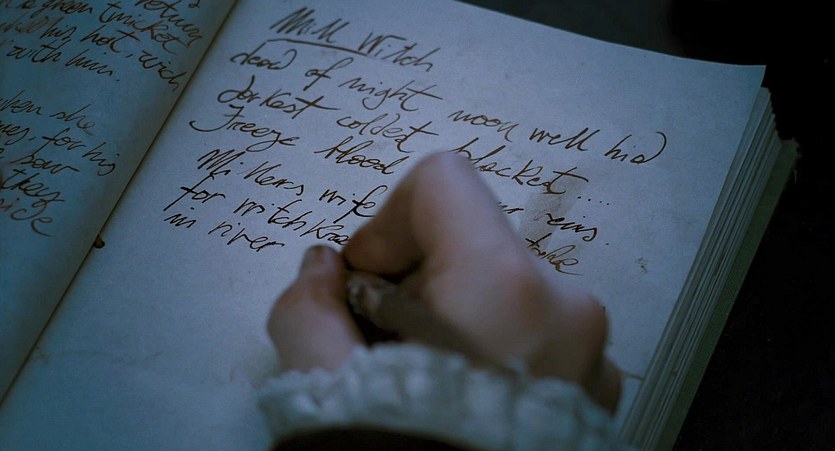 return
green thicket
his hat, wich
with him.
when she
for his
bow
they
Mill Witch
dead of night moon well hid
darkest coldest blackest ....
Freeze blood veins.
Millers wife
for witch
in river